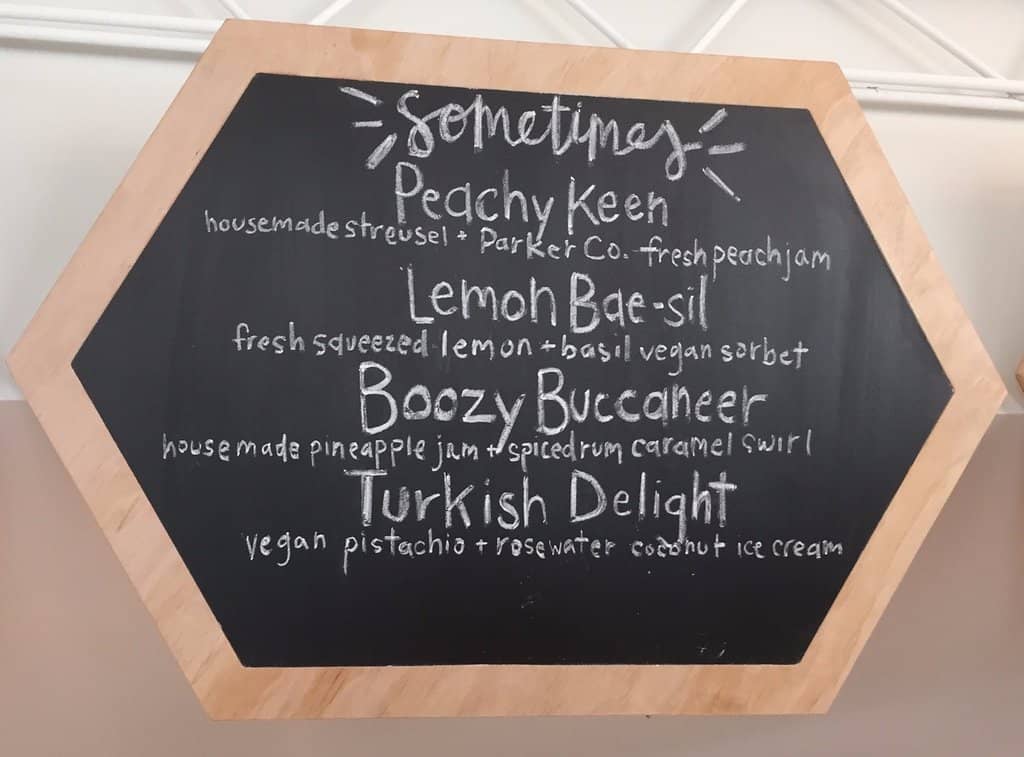 Sometimes
Peachy Keen
housemade streusel + Parker Co. fresh peach jam
Lemon Bae-sil
fresh squeezed lemon + basil vegan sorbet
Boozy Buccaneer
housemade pineapple jam + spiced rum caramel swirl
Turkish Delight
vegan pistachio + rosewater coconut ice cream